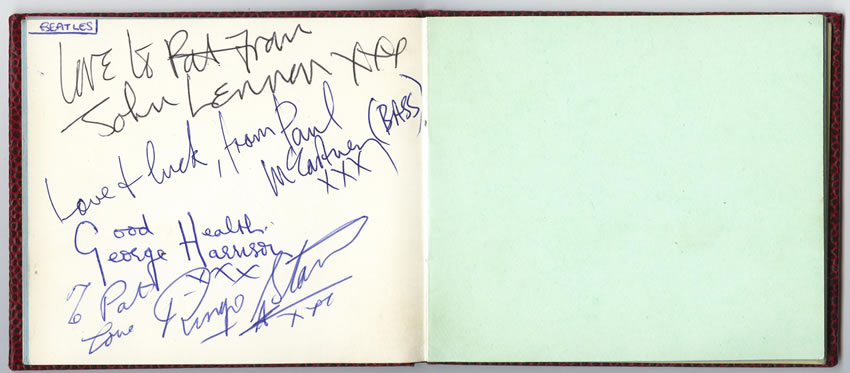 BEATLES
Love to Pat From
John Lennon xxx
Love & luck, from Paul
McCartney (BASS)
XXX
Good Health.
George Harrison
XXX
To Pat
Love Ringo Starr
xxx